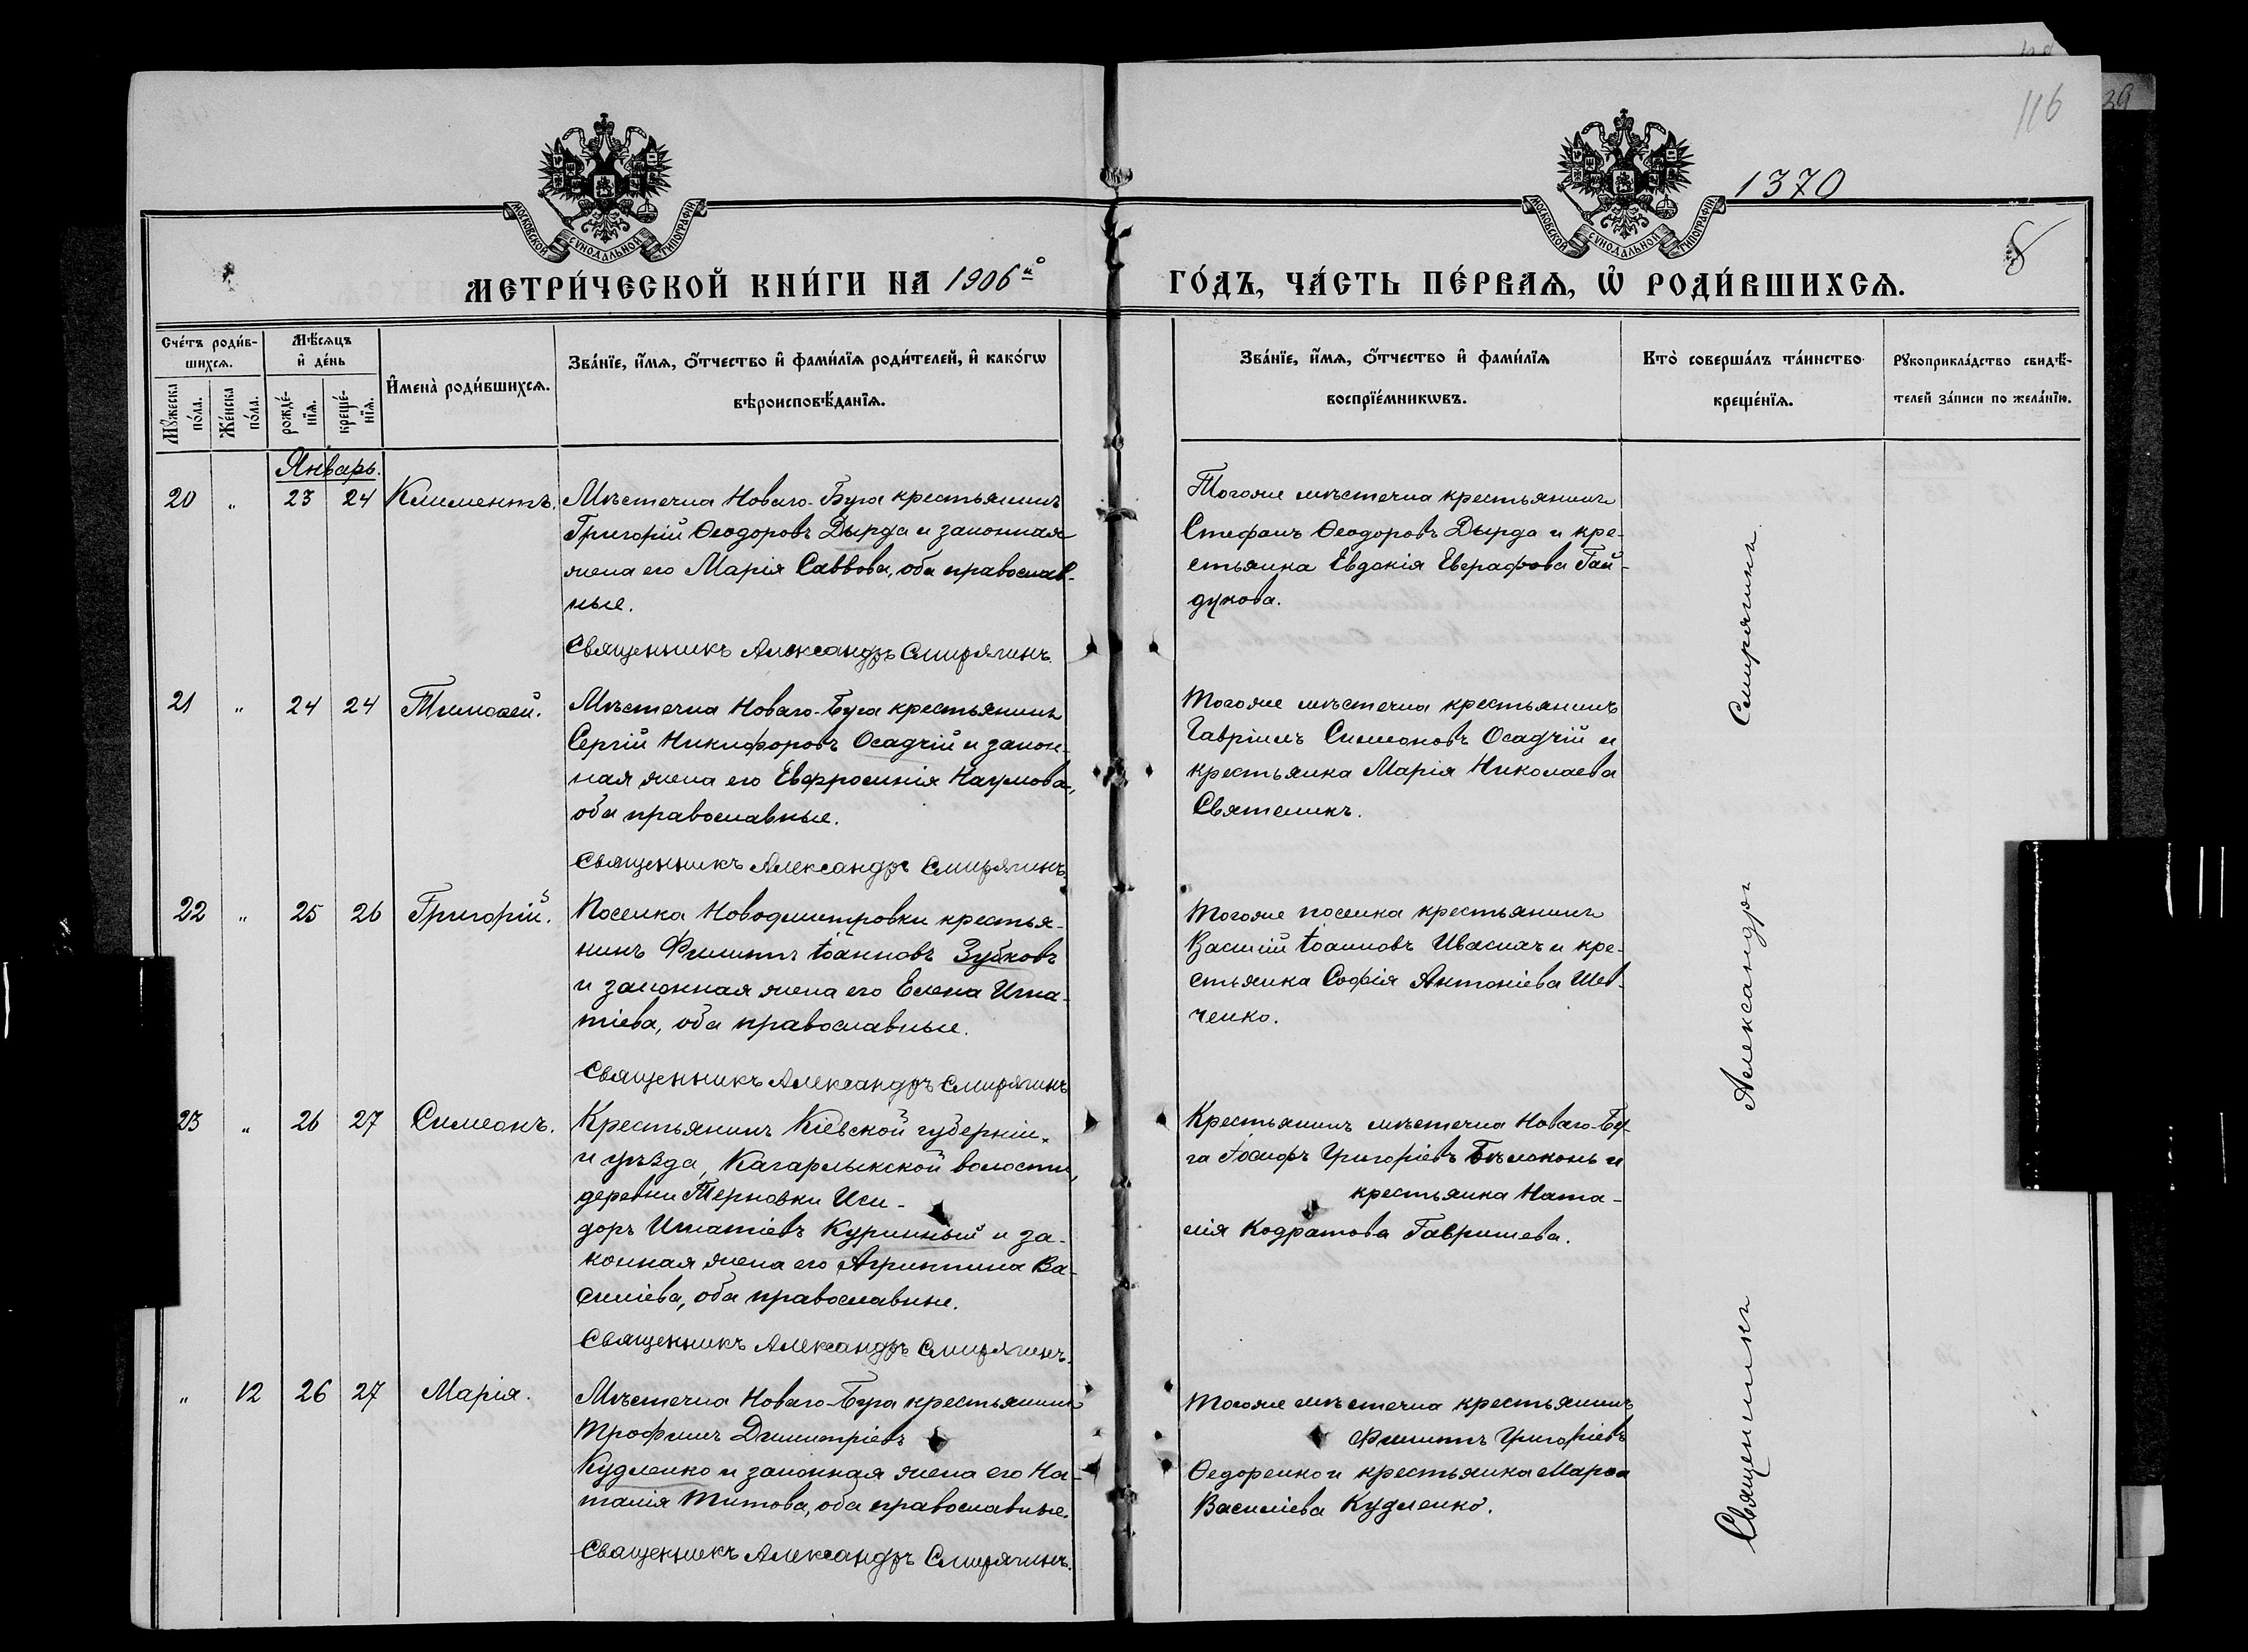 116
39
1370
8
МОСКОВСКОЙ СѴНОДАЛЬНОЙ ТИПОГРАФІИ
МОСКОВСКОЙ СѴНОДАЛЬНОЙ ТИПОГРАФІИ
МЕТРИ́ЧЕСКОЙ КНИ́ГИ НА 1906й
ГО́ДЪ, ЧА́СТЬ ПЕ́РВАѦ, Ѡ҆ РОДИ́ВШИХСѦ.
Сче́тъ роди́в-
шихсѧ.
Мѣ́сѧцъ
и҆ де́нь
Мꙋ́жеска
по́ла.
Же́нска
по́ла.
рожде́-
нїѧ.
креще́-
нїѧ.
И҆мена̀ роди́вшихсѧ.
Зва́нїе, и҆́мѧ, ѻ҆́тчество и҆ фами́лїѧ роди́телей, и҆ како́гѡ
вѣроисповѣ́данїѧ.
Зва́нїе, и҆́мѧ, ѻ҆́тчество и҆ фами́лїѧ
воспрїе́мникѡвъ.
Кто̀ соверша́лъ та́инство
креще́нїѧ.
Рꙋкоприкла́дство свидѣ́-
телей за́писи по жела́нїю.
Январь.
20 " 23 24 Климентъ.
Мѣстечка Новаго-Буга крестьянинъ
Григорій Ѳеодоровъ Дырда и законная
жена его Марія Саввова, оба православ-
ные.
Священникъ Александръ Смирягинъ.
Тогоже мѣстечка крестьянинъ
Стефанъ Ѳеодоровъ Дырда и кре-
стьянка Евдокія Еверафова Гай-
дукова.
21 " 24 24 Тимоѳей.
Мѣстечка Новаго-Буга крестьянинъ
Сергій Никифоровъ Осадчій и закон-
ная жена его Евфросинія Наумова,
оба православные.
Священникъ Александръ Смирягинъ.
Тогоже мѣстечка крестьянинъ
Гавріилъ Симеоновъ Осадчій и
крестьянка Марія Николаева
Святеликъ.
22 " 25 26 Григорій.
Поселка Новодмитровки крестья-
нинъ Филиппъ Іоанновъ Зубковъ
и законная жена его Елена Игна-
тіева, оба православные.
Священникъ Александръ Смирягинъ
Тогоже поселка крестьянинъ
Василій Іоанновъ Ивасикъ и кре-
стьянка Софія Антоніева Шев-
ченко.
23 " 26 27 Симеонъ.
Крестьянинъ Кіевской губерніи
и уѣзда, Кагарлыкской волости,
деревни Терновки Иси-
доръ Игнатіевъ Куринный и за-
конная жена его Агриппина Ва-
силіева, оба православные.
Священникъ Александръ Смирягинъ.
Крестьянинъ мѣстечка Новаго-Бу-
га Іосифъ Григоріевъ Бѣлоконь и
крестьянка Ната-
лія Кодратова Гавришева.
" 12 26 27 Марія.
Мѣстечка Новаго-Буга крестьянинъ
Трофимъ Димитріевъ
Кудленко и законная жена его На-
талія Титова, оба православные.
Священникъ Александръ Смирягинъ.
Тогоже мѣстечка крестьянинъ
Филиппъ Григоріевъ
Ѳедоренко и крестьянка Марѳа
Василіева Кудленко.
Священникъ Александръ Смирягинъ